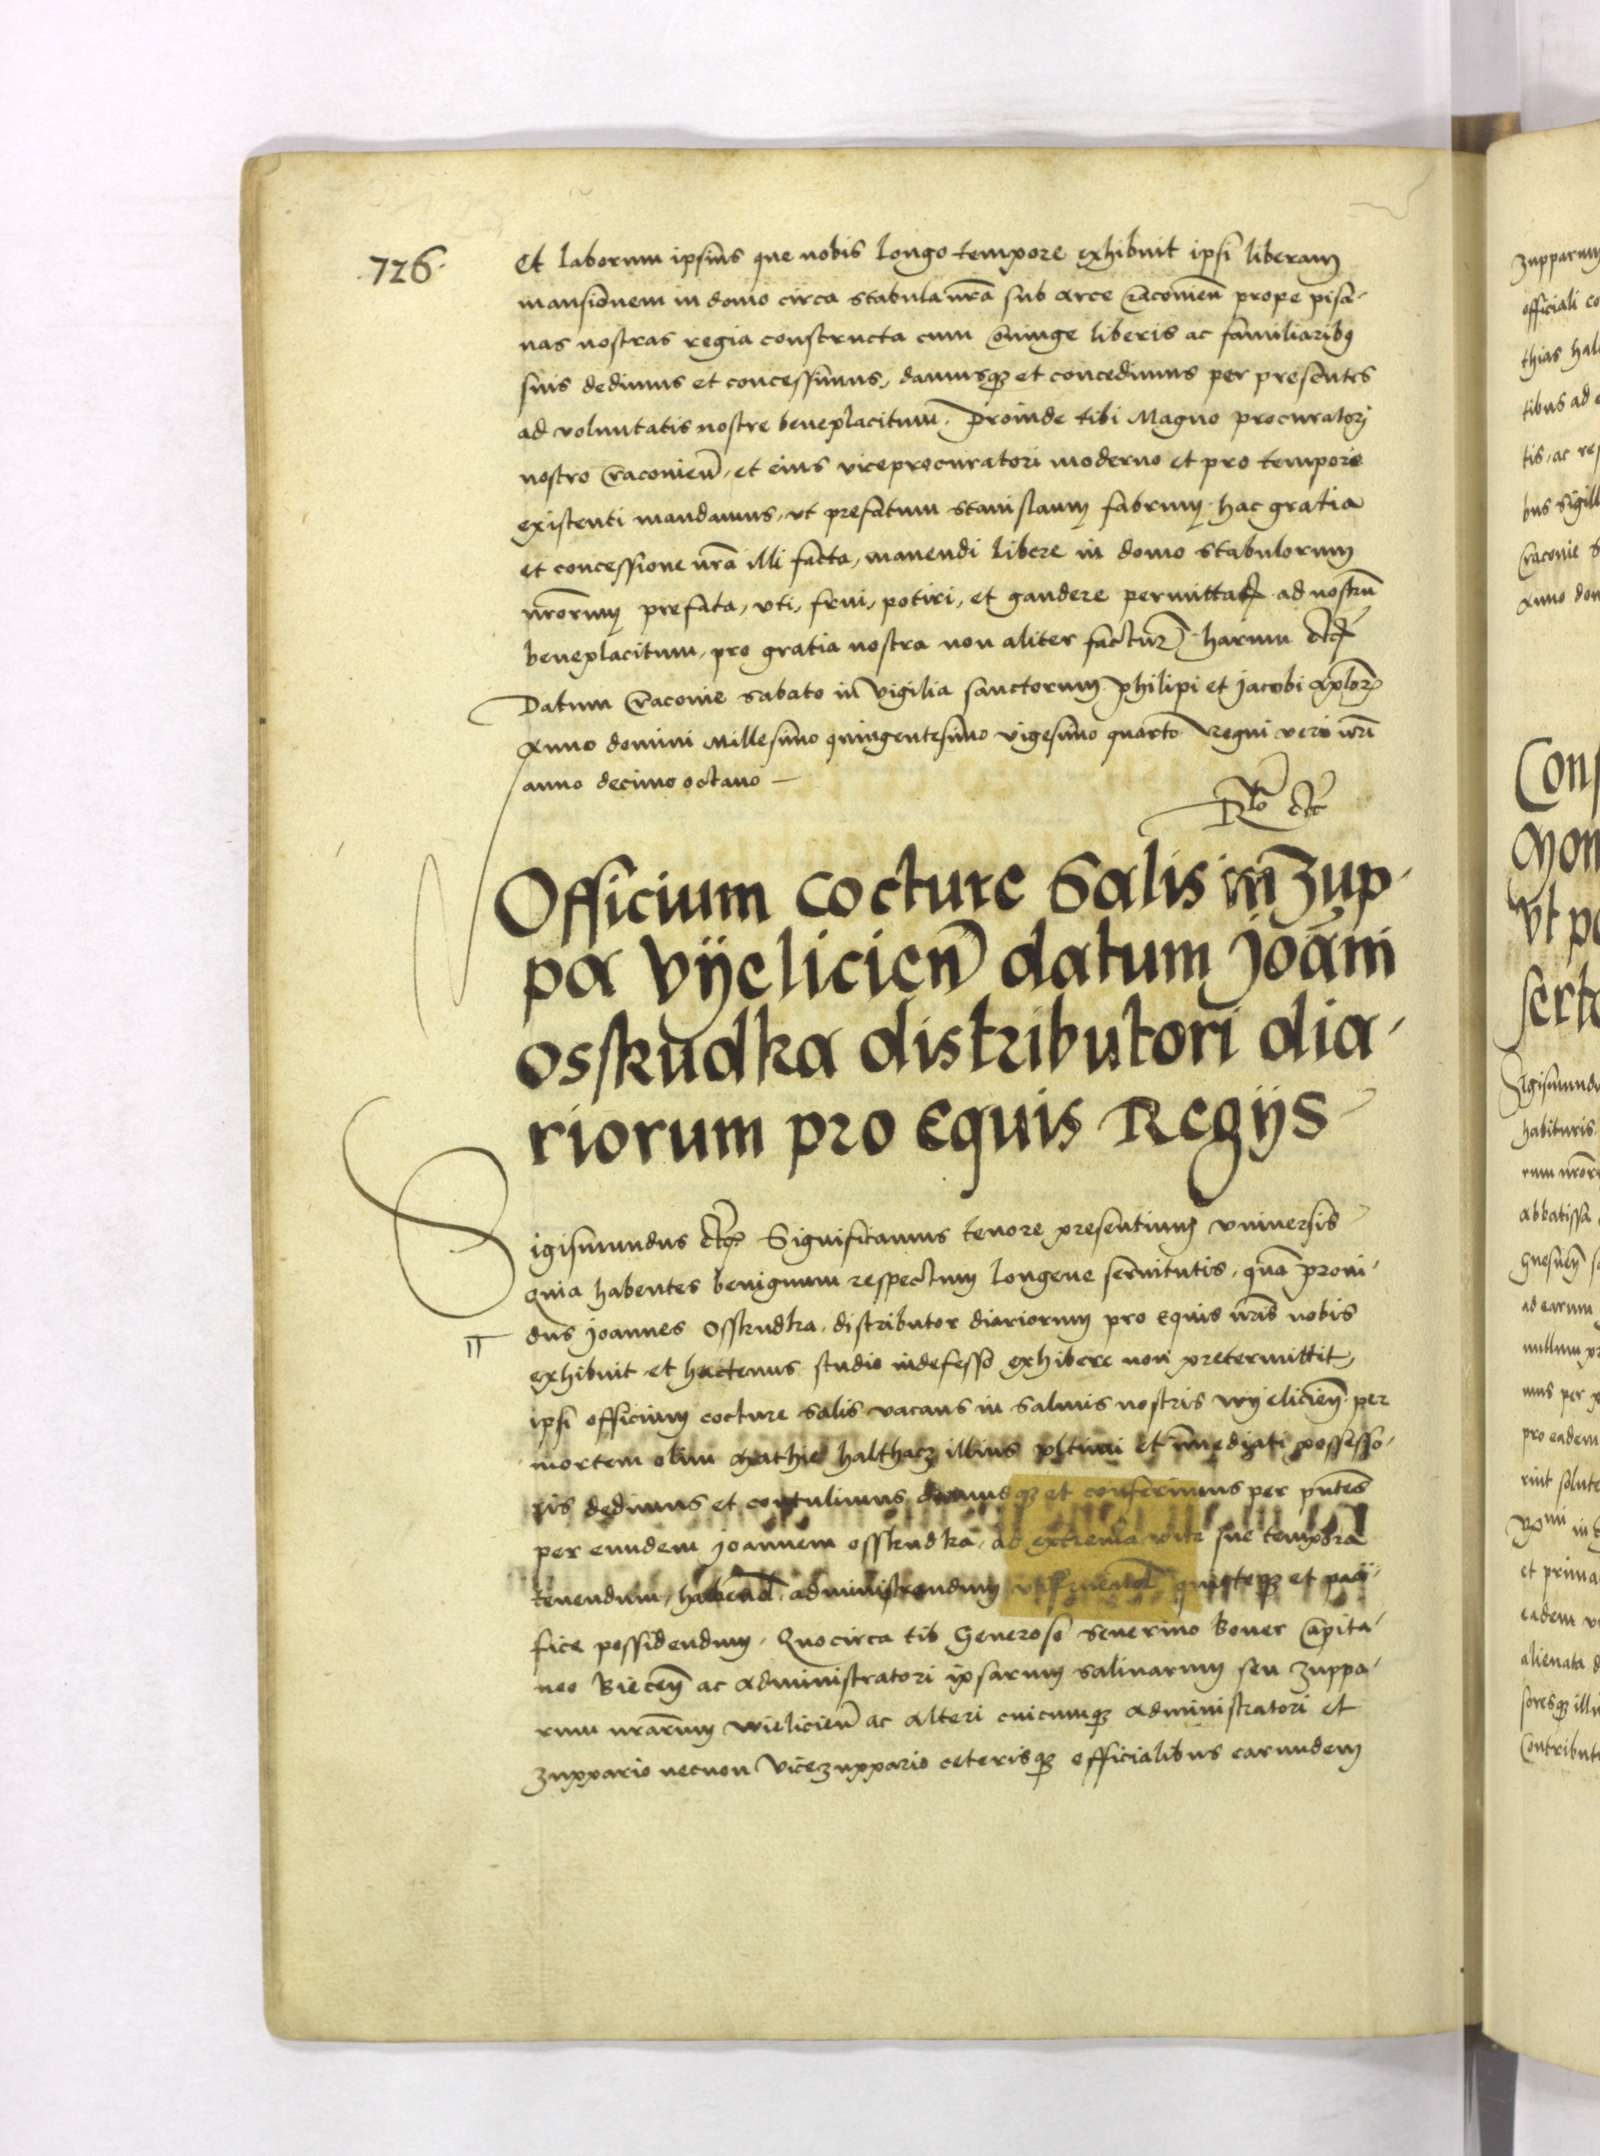 726.
et laborum ipsius que nobis longo tempore exhibuit ipsi liberam
mansionem in domo circa stabula nrã sub arce Cracovieñ prope pisci-
nas nostras regia constructa cum coniuge liberis ac familiaribꝰ
suis dedimus et concessimus, damusqꝫ et concedimus per presentes
ad voluntatis nostre beneplacitum. Proinde tibi Magno procuratori
nostro Cracovieñ, et eius viceprocuratori moderno et pro tempore
existenti mandamus, ut prefatum Stanislaum fabrum hac gratia
et concessione nrã illi facta, manendi libere in domo stabulorum
nrõrum prefata, uti, frui, potiri, et gaudere permittatꝭ ad nostrũ
beneplacitum, pro gratia nostra non aliter facturꝫ. harum etcꝭ
Datum Cracovie sabato in vigilia sanctorum philipi et Jacobi aplorꝫ
Anno domini Millesimo quingentesimo vigesimo quarto Regni vero nrĩ
anno decimo octavo —
Rlo etc
Officium cocture Salis in zup-
pa vyelicieñ datum Joãni
osskudka distributori dia-
riorum pro equis Regijs
Sigismundus etcꝭ Significamus tenore presentium universis
Quia habentes benignum respectum longeve servitutis, quã provi-
dus Joannes Osskudka, distributor diariorum pro equis nrĩs nobis
exhibuit et hactenus studio indefesso exhibere non pretermittit,
ipsi officium cocture salis vacans in salinis nostris wyelicieñ per
mortem olim Mathie halthacz illius ultimi et ĩmediati possesso-
ris dedimus et contulimus damusqꝫ et conferimus per pñtes
per eundem Joannem osskudka, ad extrema vite sue tempora
tenendum, habendꝭ administrandum utifruendꝭ quieteqꝫ et paci-
fice possidendum. Quocirca tib Generoso Severino Boner Capita-
neo Bieceñ ac administratori ipsarum salinarum seu zuppa-
rum nrarum wielicieñ ac alteri cuicumqꝫ administratori et
zuppario necnon vicezuppario ceterisqꝫ officialibus earundem